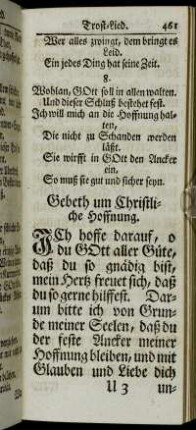 Trost-Lied. 461
Wer alles zwingt, dem bringt es
Leid.
Ein jedes Ding hat seine Zeit.
8.
Wohlan, GOtt soll in allen walten.
Und dieser Schluß bestehet fest.
Ich will mich an die Hoffnung hal-
ten,
Die nicht zu Schanden werden
läßt.
Sie wirfft in GOtt den Ancker
ein,
So muß sie gut und sicher seyn.
Gebeth um Christli-
che Hoffnung.
ICh hoffe darauf, o
du GOtt aller Güte,
daß du so gnädig bist,
mein Hertz freuet sich, daß
du so gerne hilffest. Dar-
um bitte ich von Grun-
de meiner Seelen, daß du
der feste Ancker meiner
Hoffnung bleiben, und mit
Glauben und Liebe dich
U 3 un-